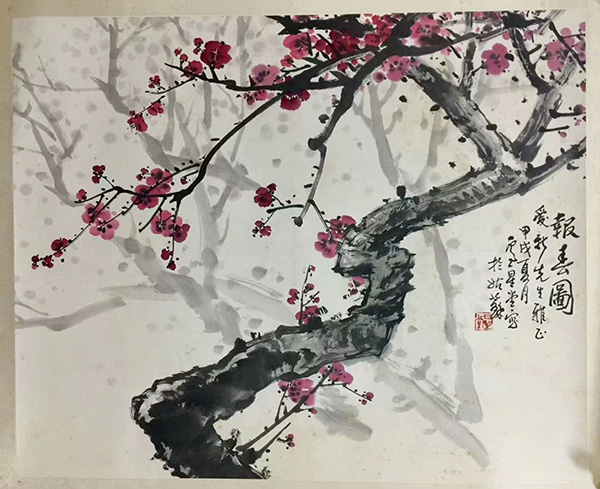 報春圖
愛新先生雅正
甲戌夏月
星堂寫
於姑蘇